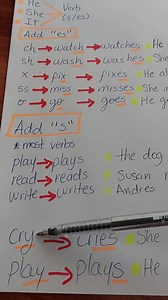 • He
• She
• It
Verb
(s/es)
Add "es"
ch → watch → watches • He
sh → wash → washes • She
x → fix → fixes • He
ss → miss → misses • She
o → go → goes • He
Add "s"
* most verbs
play → plays • the dog
read → reads • Susan
write → writes • Andres
cry → cries • She
Play → plays • He